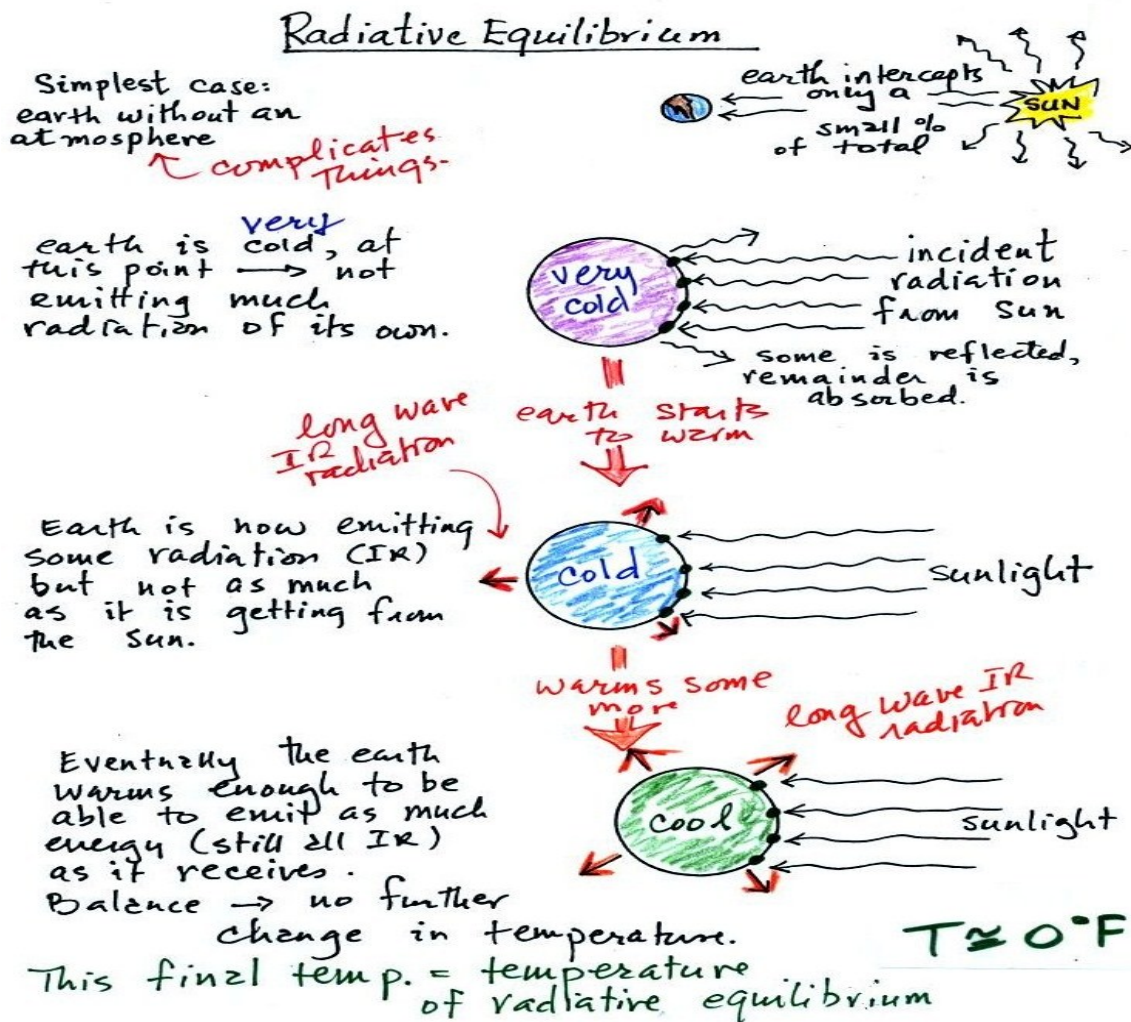 Radiative Equilibrium
Simplest case:
earth without an
atmosphere
complicates
things.
earth intercepts
only a
small %
of total
SUN
earth is very cold, at
this point → not
emitting much
radiation of its own.
very
cold
incident
radiation
from sun
some is reflected,
remainder is
absorbed.
earth starts
to warm
long wave
IR
radiation
Earth is now emitting
some radiation (IR)
but not as much
as it is getting from
the sun.
cold
sunlight
warms some
more
long wave IR
radiation
Eventually the earth
warms enough to be
able to emit as much
energy (still all IR)
as it receives.
Balance → no further
change in temperature.
cool
sunlight
T≅0°F
This final temp. = temperature
of radiative equilibrium